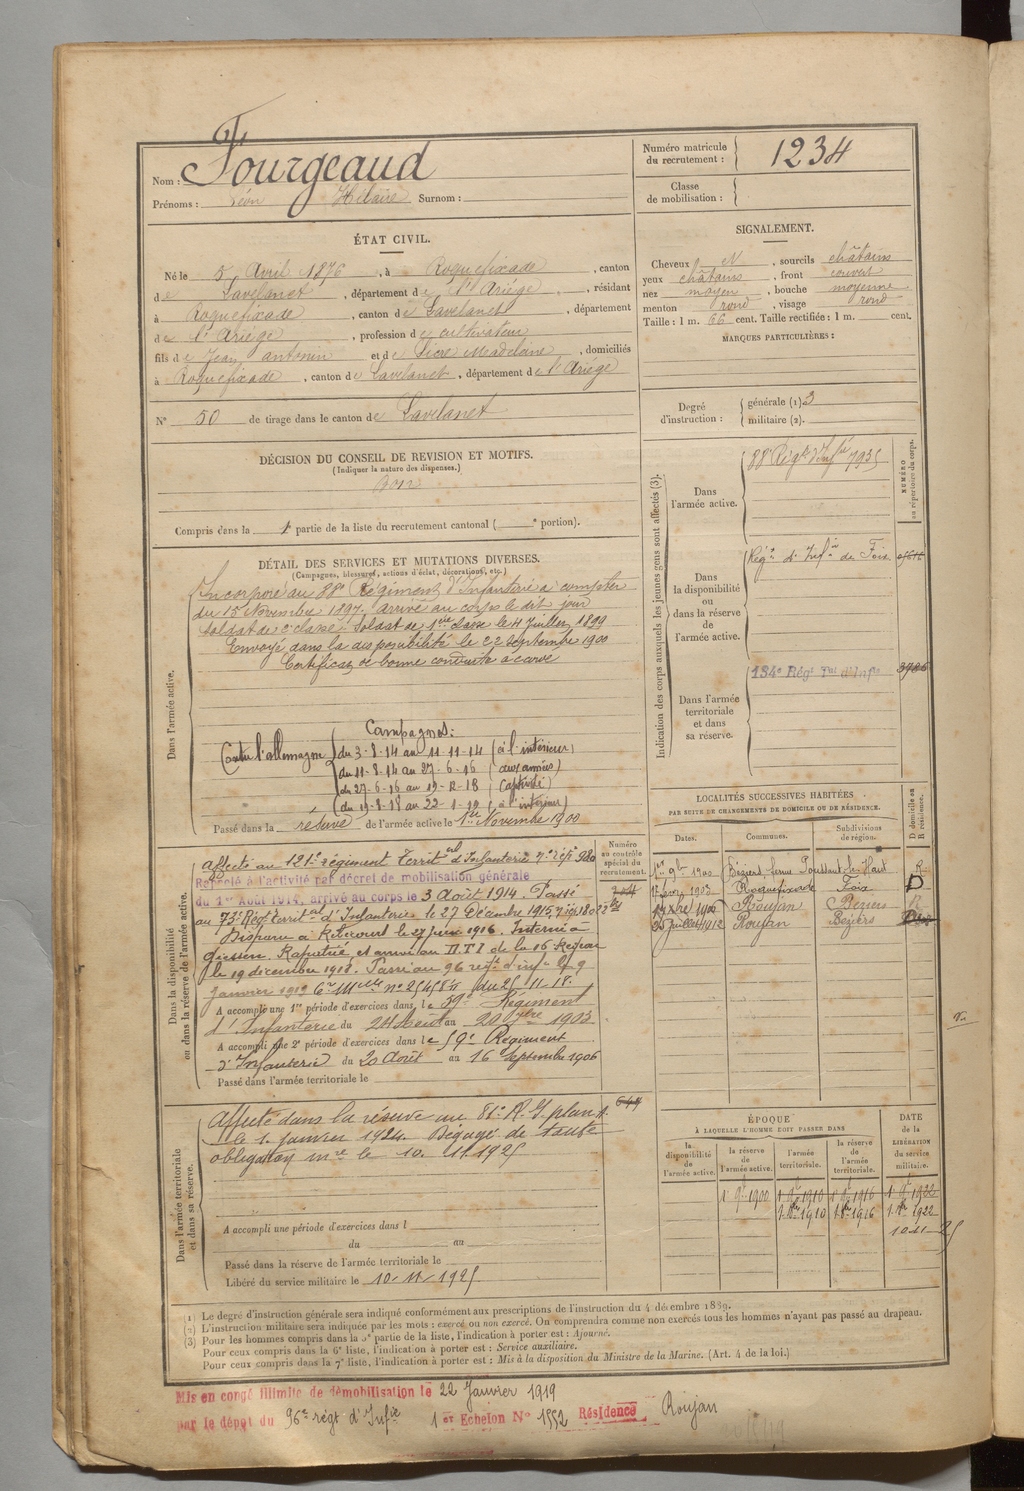 Nom : Fourgeaud
Prénoms : Léon Hilaire Surnom :
Numéro matricule du recrutement : 1234
Classe de mobilisation :
ÉTAT CIVIL.
Né le 5 Avril 1876, à Roquefixade, canton
de Lavelanet, département de l'Ariège, résidant
à Roquefixade, canton de Lavelanet, département
de l'Ariège, profession de cultivateur
fils de Jean antonin et de Sicre Madeleine, domiciliés
à Roquefixade, canton de Lavelanet, département de l'Ariège
N° 50 de tirage dans le canton de Lavelanet
SIGNALEMENT.
Cheveux N, sourcils châtains
yeux châtains, front couvert
nez moyen, bouche moyenne
menton rond, visage rond
Taille : 1 m. 66 cent. Taille rectifiée : 1 m. cent.
MARQUES PARTICULIÈRES :
Degré d'instruction : générale (1) 3
militaire (2).
DÉCISION DU CONSEIL DE REVISION ET MOTIFS.
(Indiquer la nature des dispenses.)
Bon
Compris dans la 1e partie de la liste du recrutement cantonal ( e portion).
DÉTAIL DES SERVICES ET MUTATIONS DIVERSES.
(Campagnes, blessures, actions d'éclat, décorations, etc.)
Dans l'armée active.
Incorporé au 88e Régiment d'Infanterie à compter
du 15 Novembre 1897 arrivé au corps le dit jour
soldat de 2e classe. Soldat de 1ère classe le 4 Juillet 1899
Envoyé dans la disponibilité le 22 Septembre 1900
Certificat de bonne conduite accordé
Campagnes :
Contre l'allemagne
du 3-8-14 au 11-11-14 (à l'intérieur)
du 11-8-14 au 27-6-16 (aux armées)
du 27-6-16 au 19-12-18 (captivité)
du 19-8-18 au 22-1-19 (à l'intérieur)
Passé dans la réserve de l'armée active le 1er Novembre 1900
Indication des corps auxquels les jeunes gens sont affectés (3).
NUMÉRO au répertoire du corps.
Dans l'armée active.
88e Régt d'Infie 7935
Dans la disponibilité ou dans la réserve de l'armée active.
Régt d'Infie de Foix
Dans l'armée territoriale et dans sa réserve.
134e Régt Tal d'Infie
LOCALITÉS SUCCESSIVES HABITÉES
PAR SUITE DE CHANGEMENTS DE DOMICILE OU DE RÉSIDENCE.
Dates. Communes. Subdivisions de région. D domicile ou R résidence.
1er 9bre 1900 Béziers Béziers R
1903 Roquefixade Foix D
1906 Roujan Béziers R
25 Juillet 1912 Roujan Béziers
Dans la disponibilité ou dans la réserve de l'armée active.
Numéro au contrôle spécial du recrutement.
Affecté au 121e régiment Territal d'Infanterie n° répre 980
Rappelé à l'activité par décret de mobilisation générale
du 1er Août 1914, arrivé au corps le 3 Août 1914. Passé
au 73e Régt Territal d'Infanterie le 27 Décembre 1915
Disparu à le 27 juin 1916. Interné à
Giessen. Rapatrié et arrivé au D.T.I de la 16 Région
le 19 décembre 1918. Passé au 96 régt d'infie le 9
janvier 1919 du 25-11-18.
A accompli une 1re période d'exercices dans le 59e Régiment
d'Infanterie du 24 Août au 20 7bre 1903
A accompli une 2e période d'exercices dans le 59e Régiment
d'Infanterie du 20 Août au 16 Septembre 1906
Passé dans l'armée territoriale le
Dans l'armée territoriale et dans sa réserve.
Affecté dans la réserve au 81e R.I. plan
le 1. janvier 1924. Dégagé de toute
obligation mre le 10.11.1925
A accompli une période d'exercices dans l
du au
Passé dans la réserve de l'armée territoriale le
Libéré du service militaire le 10-11-1925
ÉPOQUE
À LAQUELLE L'HOMME DOIT PASSER DANS
DATE de la LIBÉRATION du service militaire.
la disponibilité de l'armée active. la réserve de l'armée active. l'armée territoriale. la réserve de l'armée territoriale.
1 9 1900 1 9 1910 1 9 1916 1 9 1922
1 1910 1 1916 1 1922
10-11-25
(1) Le degré d'instruction générale sera indiqué conformément aux prescriptions de l'instruction du 4 décembre 1889.
(2) L'instruction militaire sera indiquée par les mots : exercé ou non exercé. On comprendra comme non exercés tous les hommes n'ayant pas passé au drapeau.
(3) Pour les hommes compris dans la 5e partie de la liste, l'indication à porter est : Ajourné.
Pour ceux compris dans la 6e liste, l'indication à porter est : Service auxiliaire.
Pour ceux compris dans la 7e liste, l'indication à porter est : Mis à la disposition du Ministre de la Marine. (Art. 4 de la loi.)
Mis en congé illimité de démobilisation le 22 Janvier 1919
par le dépôt du 96e régt d'Infie 1er Echelon N° 1552 Résidence Roujan